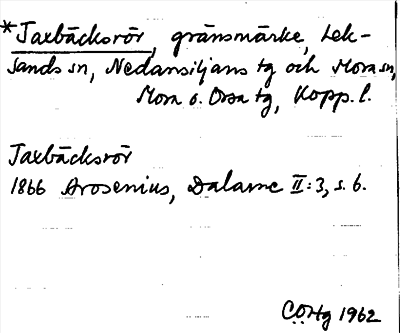 *Jaxbäcksrör, gränsmärke, Lek-
sands sn, Nedansiljans tg och Mora sn,
Mora o. Orsa tg, Kopp. l.
Jaxbäcksrör
1866 Arosenius, Dalarne II:3, s. 6.
CÖHg 1962